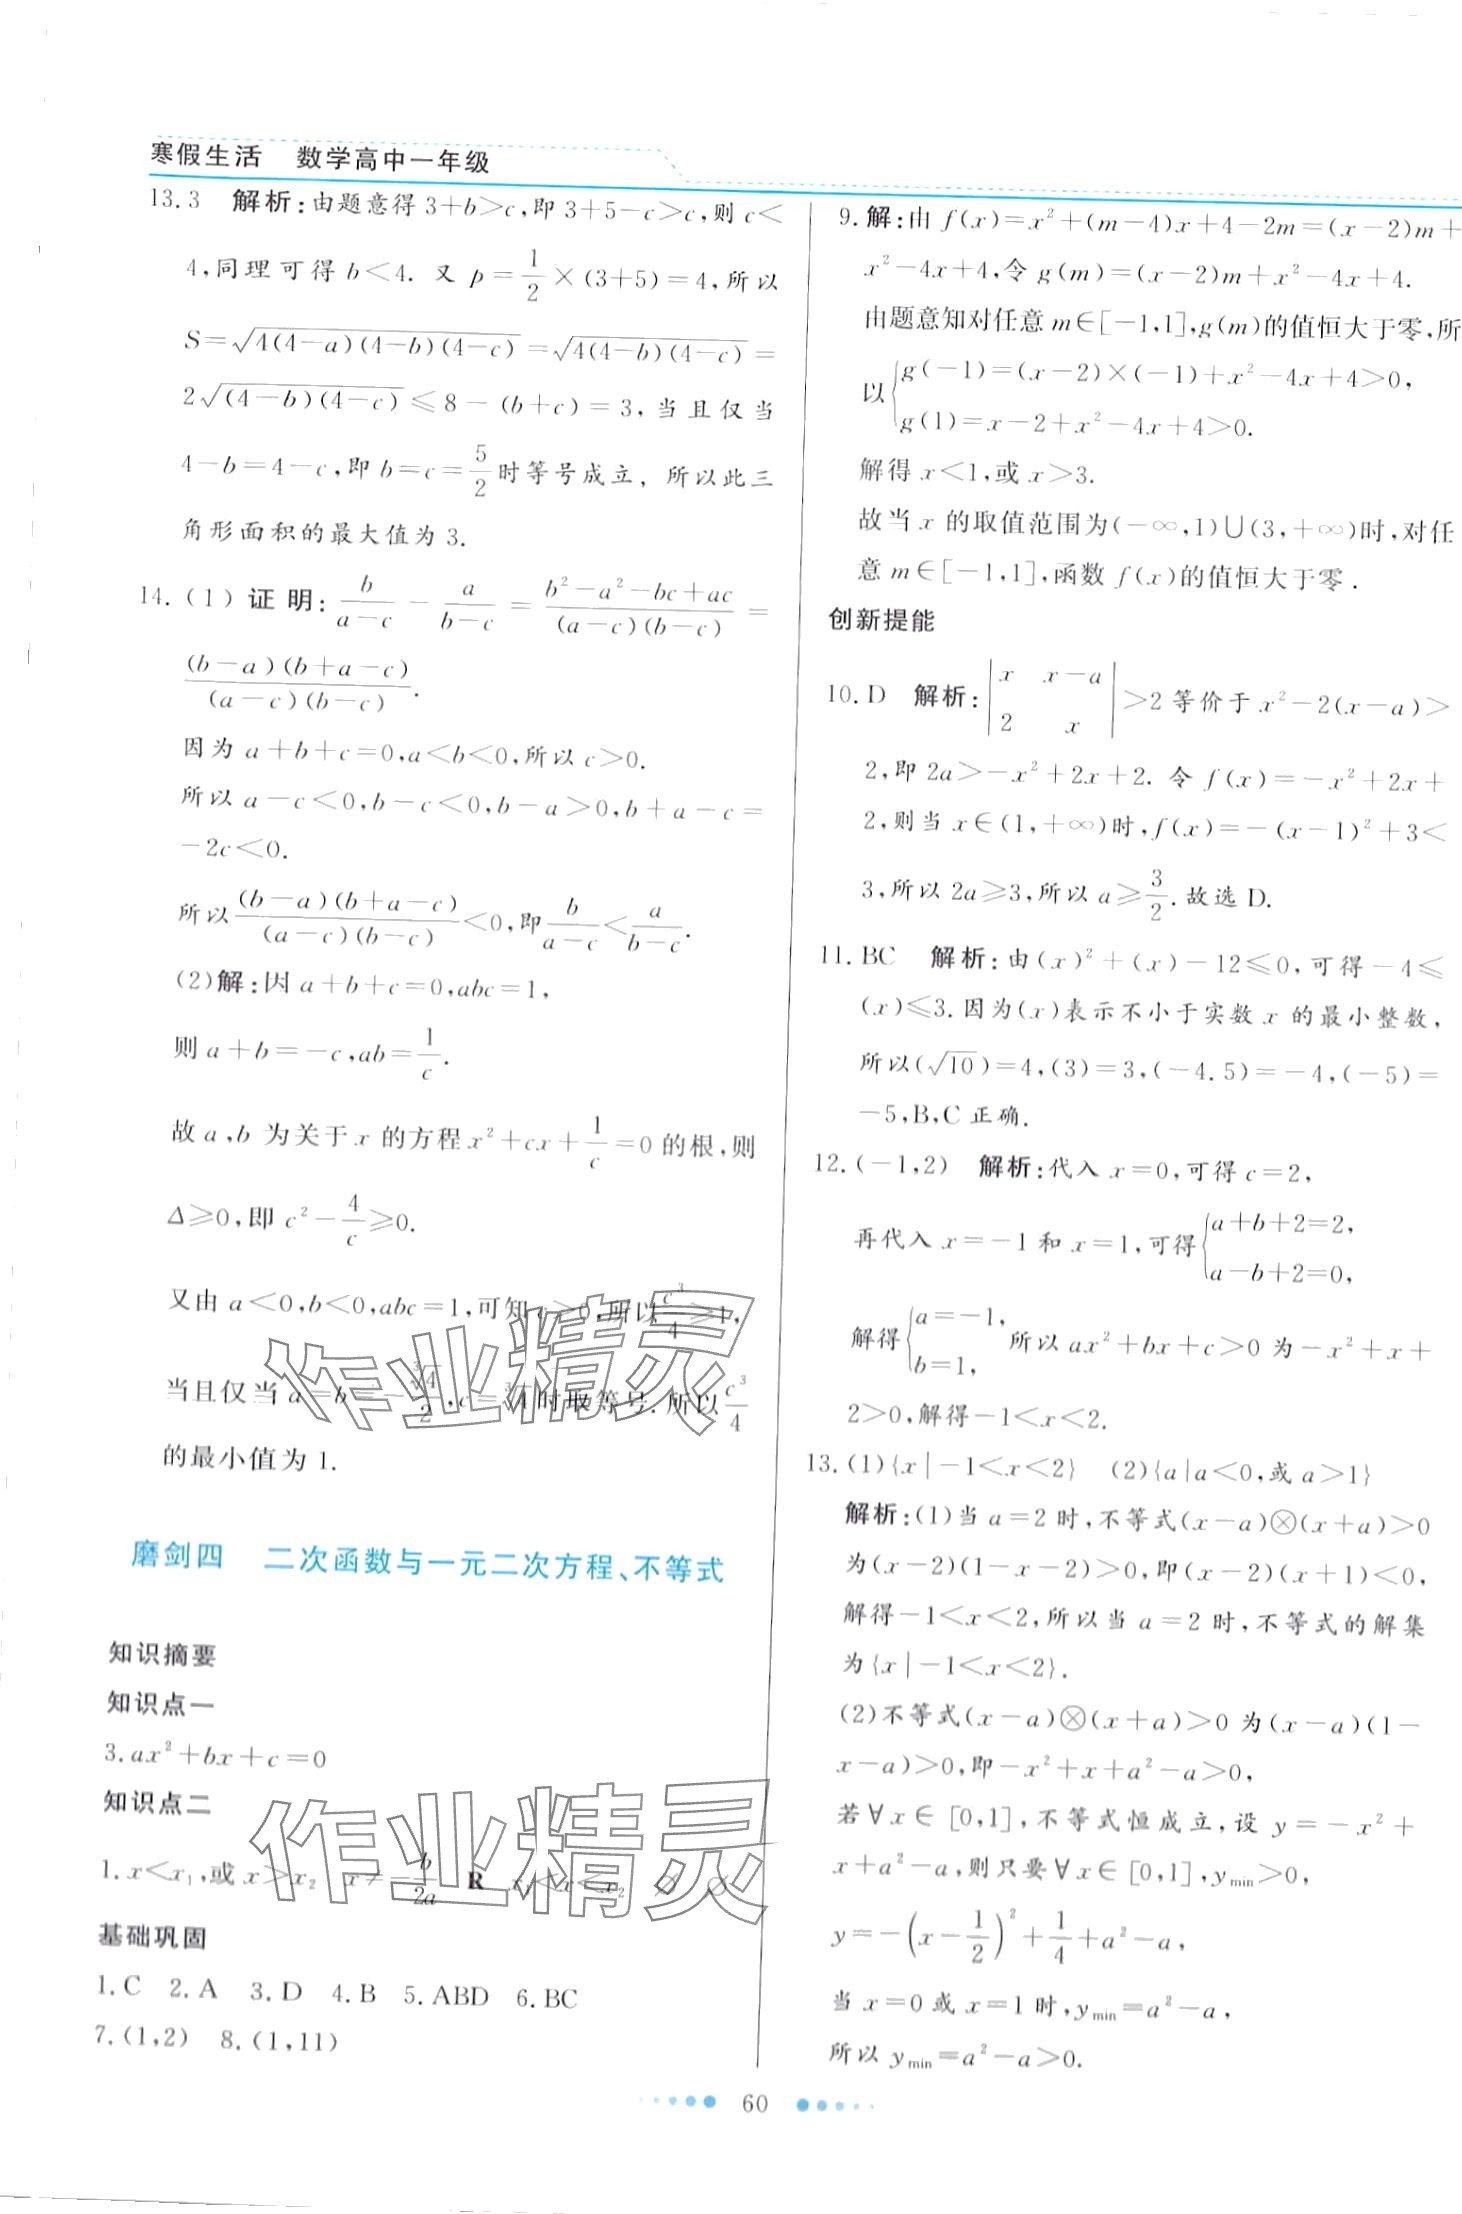 寒假生活 数学高中一年级
13.3 解析:由题意得 3+b>c,即 3+5-c>c,则 c<
4,同理可得 b<4. 又 p=1/2×(3+5)=4,所以
S=√(4(4-a)(4-b)(4-c))=√(4(4-b)(4-c))=
2√((4-b)(4-c))≤8-(b+c)=3,当且仅当
4-b=4-c,即 b=c=5/2时等号成立, 所以此三
角形面积的最大值为 3.
14.(1)证明: b/(a-c) - a/(b-c) = (b²-a²-bc+ac)/((a-c)(b-c)) =
(b-a)(b+a-c)/((a-c)(b-c)).
因为 a+b+c=0,a<b<0,所以 c>0.
所以 a-c<0,b-c<0,b-a>0,b+a-c=
-2c<0.
所以 (b-a)(b+a-c)/((a-c)(b-c))<0,即 b/(a-c)<a/(b-c).
(2)解:因 a+b+c=0,abc=1,
则 a+b=-c,ab=1/c.
故 a,b 为关于 x 的方程 x²+cx+1/c=0 的根,则
Δ≥0,即 c²-4/c≥0.
又由 a<0,b<0,abc=1,可知 c>0,所以 c³/4≥1,
当且仅当 a=b=-∛4/2,c=∛4时取等号.所以 c³/4
的最小值为 1.
磨剑四 二次函数与一元二次方程、不等式
知识摘要
知识点一
3.ax²+bx+c=0
知识点二
1.x<x₁,或 x>x₂ x≠-b/2a R x₁<x<x₂ ∅ ∅
基础巩固
1.C 2.A 3.D 4.B 5.ABD 6.BC
7.(1,2) 8.(1,11)
9.解:由 f(x)=x²+(m-4)x+4-2m=(x-2)m+
x²-4x+4,令 g(m)=(x-2)m+x²-4x+4.
由题意知对任意 m∈[-1,1],g(m)的值恒大于零,所
以{g(-1)=(x-2)×(-1)+x²-4x+4>0,
g(1)=x-2+x²-4x+4>0.
解得 x<1,或 x>3.
故当 x 的取值范围为(-∞,1)∪(3,+∞)时,对任
意 m∈[-1,1],函数 f(x)的值恒大于零.
创新提能
10.D 解析: |x x-a
2 x| >2 等价于 x²-2(x-a)>
2,即 2a>-x²+2x+2. 令 f(x)=-x²+2x+
2,则当 x∈(1,+∞)时,f(x)=-(x-1)²+3<
3,所以 2a≥3,所以 a≥3/2.故选 D.
11.BC 解析:由(x)²+(x)-12≤0,可得-4≤
(x)≤3.因为(x)表示不小于实数 x 的最小整数,
所以(√10)=4,(3)=3,(-4.5)=-4,(-5)=
-5,B,C 正确.
12.(-1,2) 解析:代入 x=0,可得 c=2,
再代入 x=-1 和 x=1,可得{a+b+2=2,
a-b+2=0,
解得{a=-1,
b=1, 所以 ax²+bx+c>0 为-x²+x+
2>0,解得-1<x<2.
13.(1){x|-1<x<2} (2){a|a<0,或a>1}
解析:(1)当 a=2 时,不等式(x-a)⊗(x+a)>0
为(x-2)(1-x-2)>0,即(x-2)(x+1)<0,
解得-1<x<2,所以当 a=2 时,不等式的解集
为{x|-1<x<2}.
(2)不等式(x-a)⊗(x+a)>0 为(x-a)(1-
x-a)>0,即-x²+x+a²-a>0,
若∀x∈[0,1],不等式恒成立,设 y=-x²+
x+a²-a,则只要∀x∈[0,1],yₘᵢₙ>0,
y=-(x-1/2)²+1/4+a²-a,
当 x=0 或 x=1 时,yₘᵢₙ=a²-a,
所以 yₘᵢₙ=a²-a>0.
60
作业精灵
作业精灵